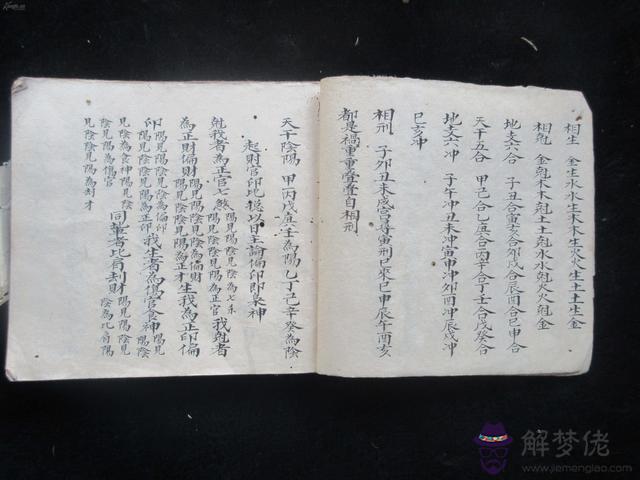 相生 金生水水生木木生火火生土土生金
相尅 金尅木木尅土土尅水水尅火火尅金
地支六合 子丑合寅亥合卯戌合辰酉合巳申合
天干五合 甲己合乙庚合丙辛合丁壬合戊癸合
地支六冲 子午冲丑未冲寅申冲卯酉冲辰戌冲
巳亥冲
相刑 子卯丑未戌宫寻寅刑巳來巳申辰午酉亥
都是禍重重疊疊自相刑
天干陰陽 甲丙戊庚壬為陽乙丁己辛癸為陰
起財官印比 以日主論偏印即枭神
尅我者為正官七煞 陽見陽陰見陰為七杀 陽見陰陰見陽為正官 我尅者
為正財偏財 陽見陽陰見陰為偏財 陽見陰陰見陽為正才 生我為正印偏
印 陽見陽陰見陰為偏印 陽見陰陰見陽為正印 我生者為傷官食神 陽見陽陰
見陰為食神陽見陰 陰見陽為傷官 同類者比肩刦財 陽見陽陰見陰為比肩陽
見陰陰見陽為刦才
解梦佬
www.jiemenglao.com